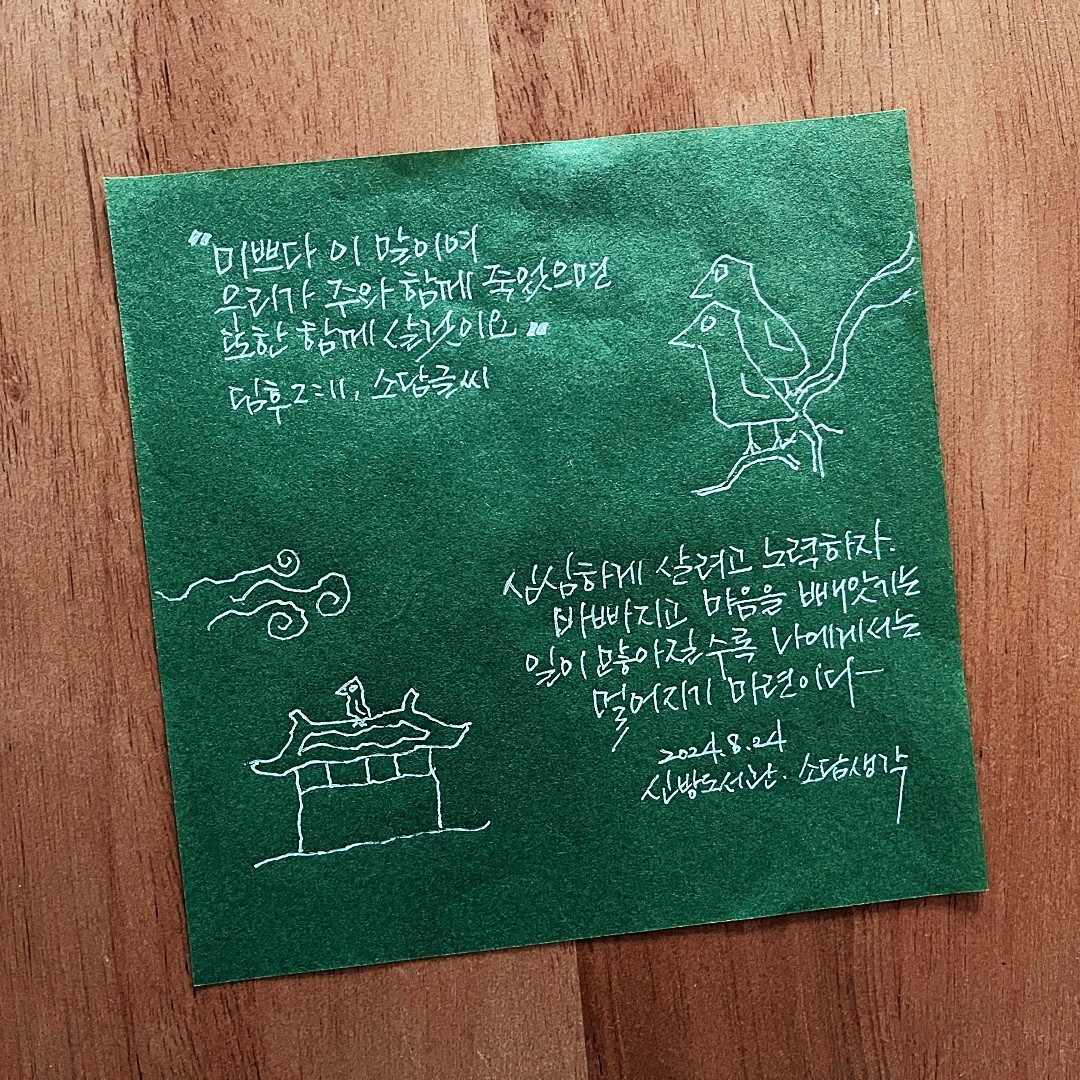 "미쁘다 이 말이여
우리가 주와 함께 죽었으면
또한 함께 살것이요"
딤후2:11, 소담글씨
심심하게 살려고 노력하자.
바빠지고 마음을 빼앗기는
일이 많아질수록 나에게서는
멀어지기 마련이다-
2024.8.24
신방도서관. 소담생각